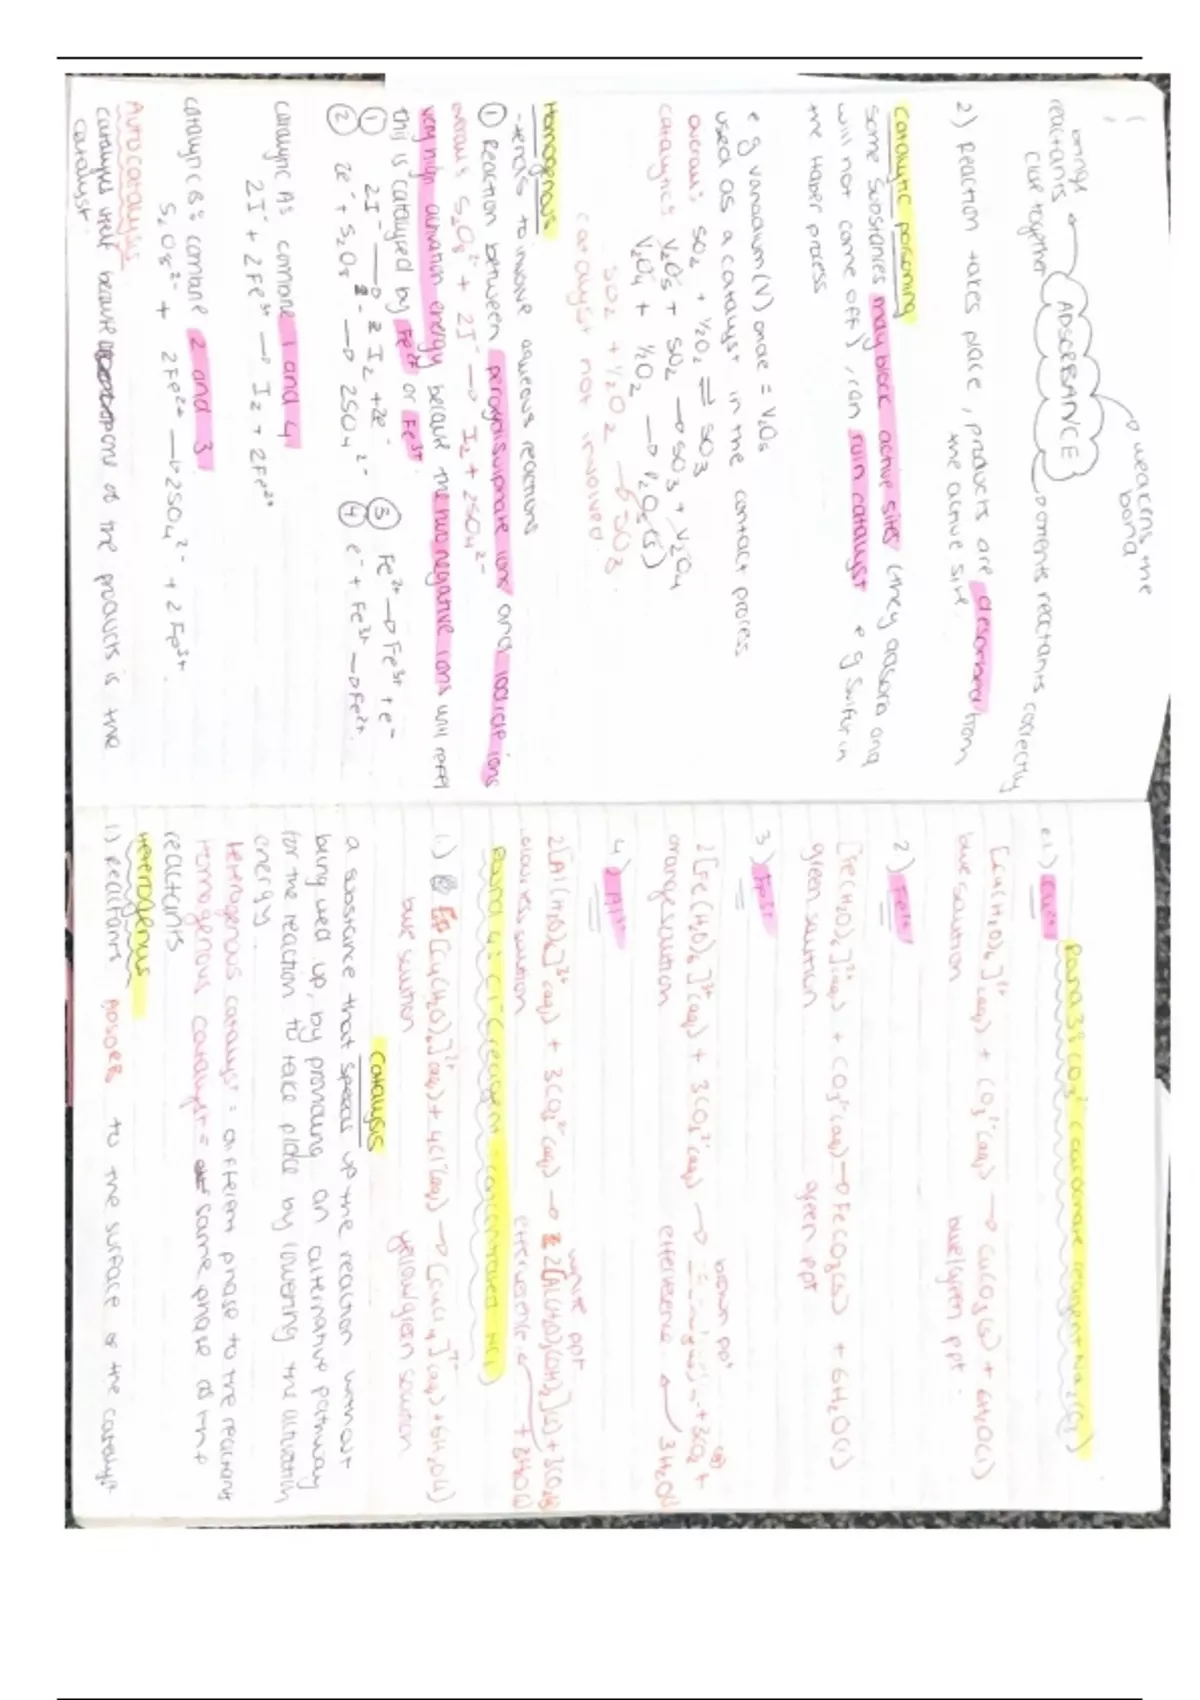 brings reactants close together
ADSORBANCE
weakens the bond
orients reactants correctly
2) Reaction takes place, products are desorbed from
the active site.
Catalytic poisoning
some substances may block active sites (they adsorb and
will not come off), can ruin catalyst e.g sulfur in
the Haber process
e.g vanadium (V) oxide = V₂O₅
used as a catalyst in the contact process
overall: SO₂ + ½O₂ ⇌ SO₃
catalytic: V₂O₅ + SO₂ → SO₃ + V₂O₄
V₂O₄ + ½O₂ → V₂O₅(s)
SO₂ + ½O₂ → SO₃
catalyst not involved.
Homogenous
- tends to involve aqueous reactions
① Reaction between peroxydisulphate ions and iodide ions
overall: S₂O₈²⁻ + 2I⁻ → I₂ + 2SO₄²⁻
very high activation energy because the two negative ions will repel
this is catalysed by Fe²⁺ or Fe³⁺.
① 2I⁻ → I₂ + 2e⁻ ③ Fe²⁺ → Fe³⁺ + e⁻
② 2e⁻ + S₂O₈²⁻ → 2SO₄²⁻ ④ e⁻ + Fe³⁺ → Fe²⁺.
catalytic A: combine 1 and 4
2I⁻ + 2Fe³⁺ → I₂ + 2Fe²⁺
catalytic B: combine 2 and 3
S₂O₈²⁻ + 2Fe²⁺ → 2SO₄²⁻ + 2Fe³⁺.
Autocatalysis
catalyses itself because one of the products is the
catalyst.
CO₃²⁻ (carbonate reagent Na₂CO₃)
1) Cu²⁺
[Cu(H₂O)₆]²⁺(aq) + CO₃²⁻(aq) → CuCO₃(s) + 6H₂O(l)
blue solution blue/green ppt.
2) Fe²⁺
[Fe(H₂O)₆]²⁺(aq) + CO₃²⁻(aq) → FeCO₃(s) + 6H₂O(l)
green solution green ppt
3) Fe³⁺
brown ppt
2[Fe(H₂O)₆]³⁺(aq) + 3CO₃²⁻(aq) → + 3CO₂ +
orange solution effervesence 3H₂O(l)
4) Al³⁺
white ppt
2[Al(H₂O)₆]³⁺(aq) + 3CO₃²⁻(aq) → 2[Al(H₂O)₃(OH)₃](s) + 3CO₂(g)
colourless solution effervesence + 3H₂O(l)
Cl⁻ (reagent - concentrated HCl)
1.) [Cu(H₂O)₆]²⁺(aq) + 4Cl⁻(aq) → [CuCl₄]²⁻(aq) + 6H₂O(l)
blue solution yellow/green solution
Catalysis
a substance that speeds up the reaction without
being used up, by providing an alternative pathway
for the reaction to take place by lowering the activation
energy.
Heterogenous catalyst = different phase to the reactants
Homogenous catalyst = same phase as the
reactants
Heterogenous
1) Reactants adsorb to the surface of the catalyst